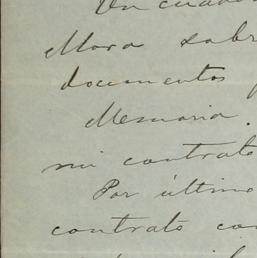 Un cuad
Mora sobr
documentos
Memoria.
mi contrato
Por último
contrato co